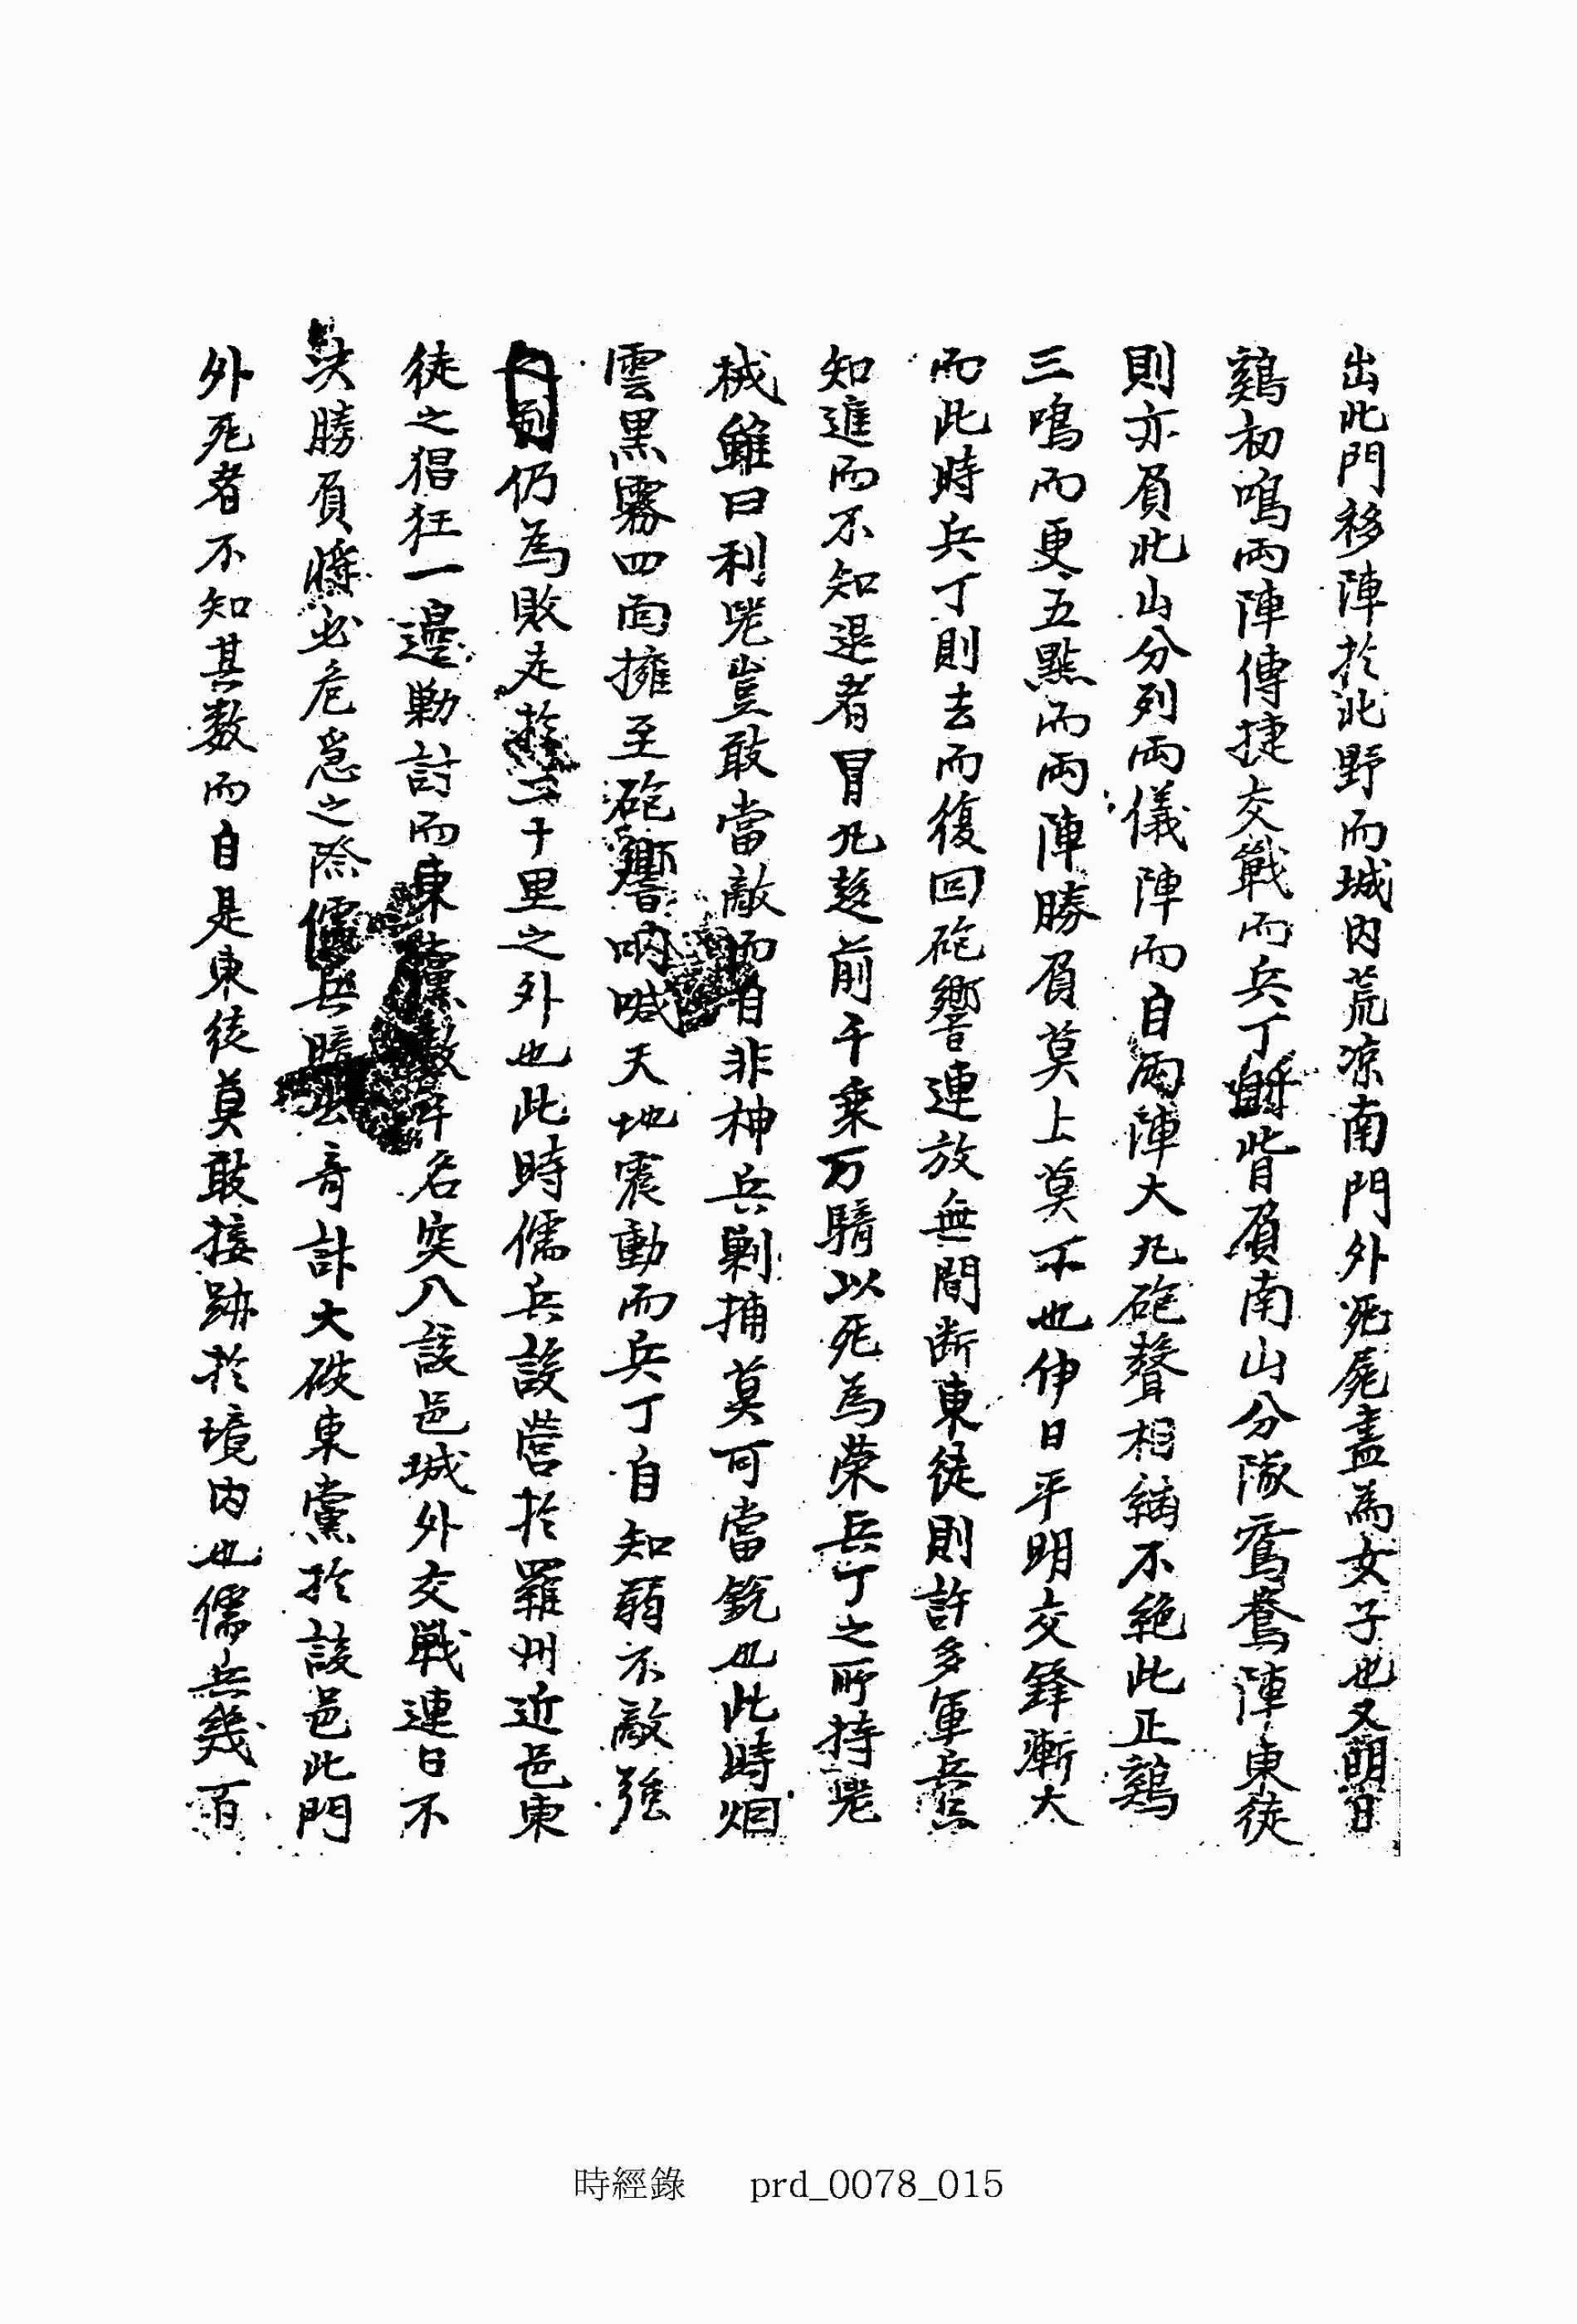 出北門移陣於北野而城內荒凉南門外死屍盡為女子也又明日
鷄初鳴兩陣傳捷交戰而兵丁背負南山分隊鴛鴦陣東徒
則亦負北山分列兩儀陣而自兩陣大丸砲聲相續不絶此正鷄
三鳴而更五點而兩陣勝負莫上莫下也伊日平明交鋒漸大
而此時兵丁則去而復回砲響連放無間断東徒則許多軍兵
知進而不知退者冒丸趍前千乗万騎以死為荣兵丁之所持
械雖曰利豈敢當敵而自非神兵剿捕莫可當銃也此時烟
雲黒霧四面擁至砲響吶喊天地震動而兵丁自知弱不敵強
仍為敗走於二十里之外也此時儒兵設營於羅州近邑東
徒之猖狂一邊勦討而東黨數千名突入該邑城外交戦連日不
决勝負將必危急之際儒兵暗出奇計大破東黨於該邑北門
外死者不知其数而自是東徒莫敢接跡於境内也儒兵幾百
時經錄 prd_0078_015